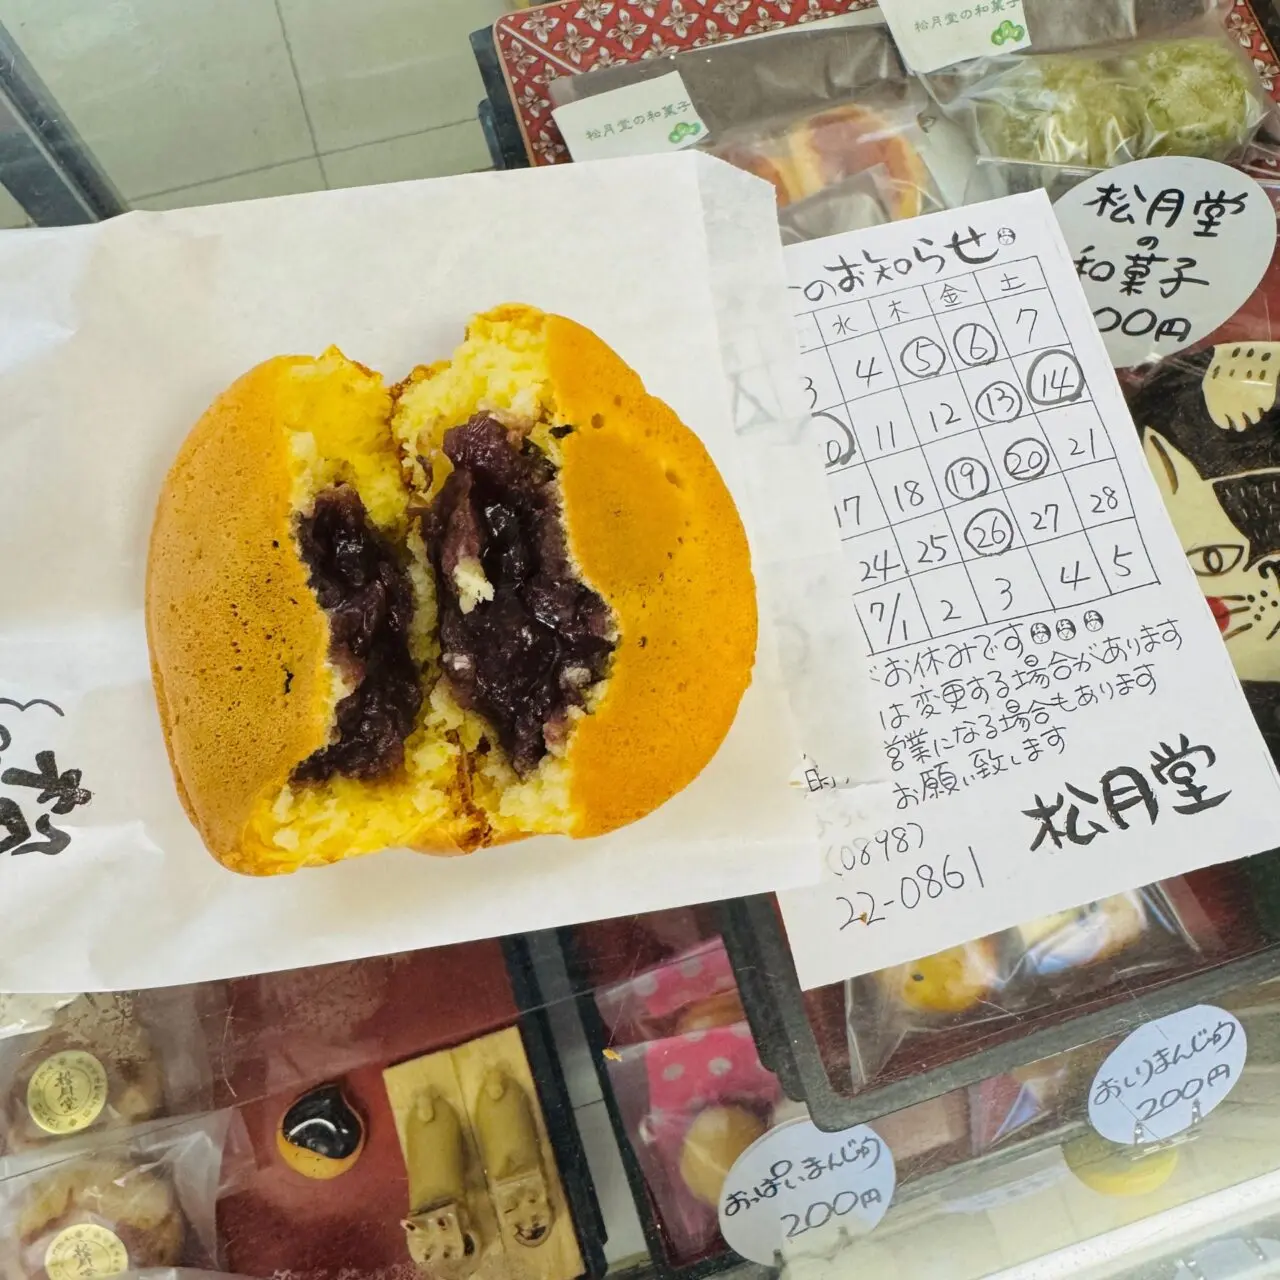 松月堂の和菓子
松月堂の和菓子
松月堂
の
和菓子
00円
のお知らせ
水 木 金 土
3 4 ⑤ ⑥ 7
0 11 12 ⑬ ⑭
17 18 ⑲ ⑳ 21
24 25 ㉖ 27 28
7/1 2 3 4 5
お休みです
変更する場合があります
営業になる場合もあります
お願い致します
松月堂
(0898)
22-0861
松
松月堂
おっぱいまんじゅう
200円
おしりまんじゅう
200円